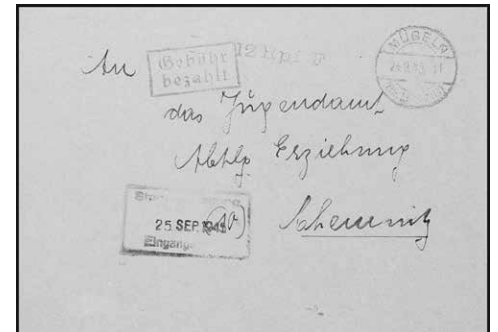 An
Gebühr
bezahlt
12 Rpf
MÜGELN
das Jugendamt
Abtlg Erziehung
Chemnitz
25 SEP. 1945
Eingang